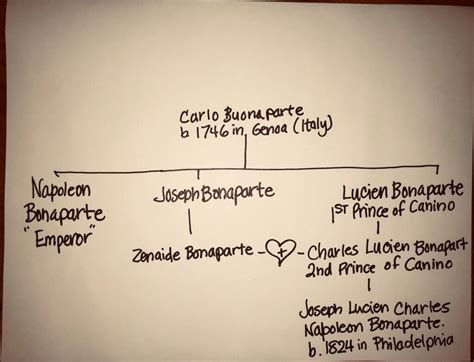 Carlo Buonaparte
b 1746 in Genoa (Italy)
Napoleon Bonaparte "Emperor"
Joseph Bonaparte
Lucien Bonaparte
1ST Prince of Canino
Zenaide Bonaparte
Charles Lucien Bonapart
2nd Prince of Canino
Joseph Lucien Charles
Napoleon Bonaparte.
b. 1824 in Philadelphia